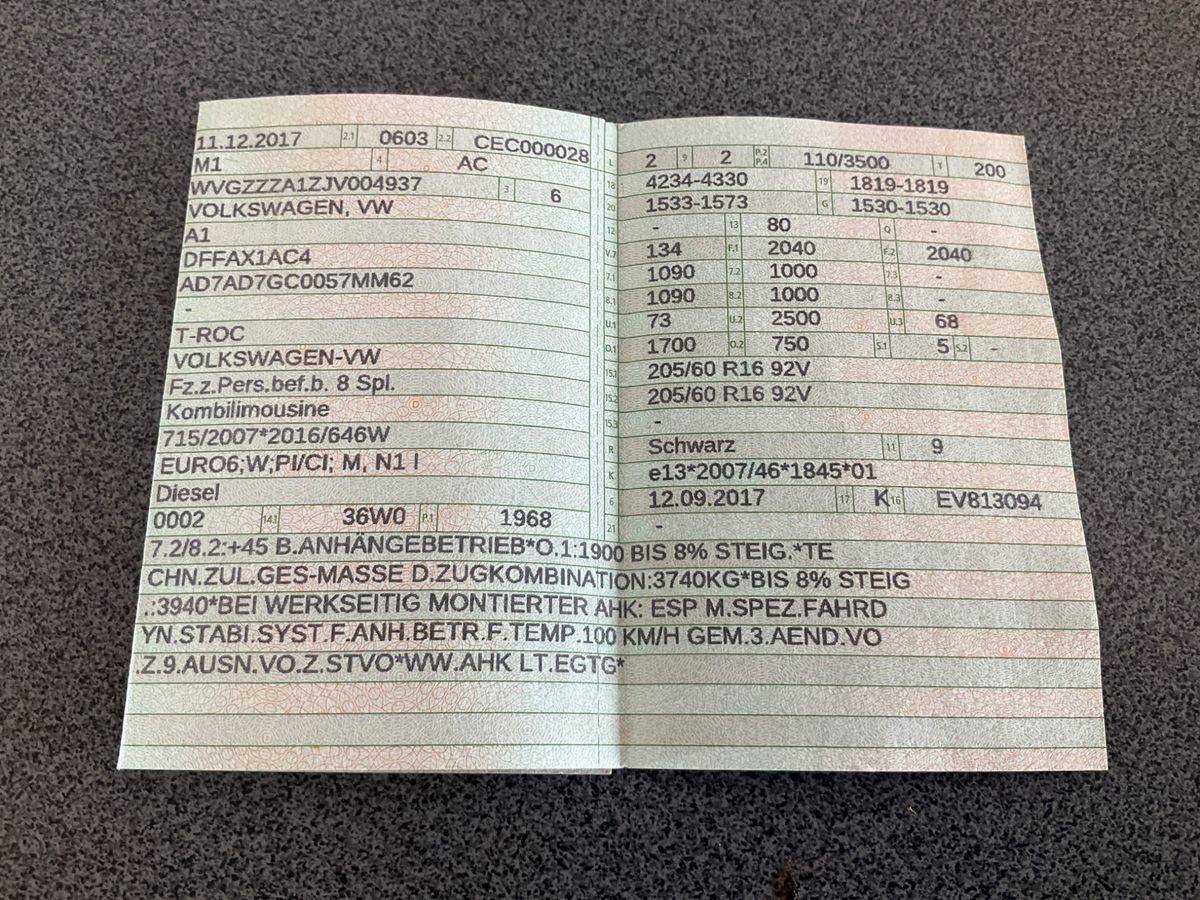 11.12.2017 2.1 0603 2.2 CEC000028
M1 4 AC
WVGZZZA1ZJV004937 3 6
VOLKSWAGEN, VW
A1
DFFAX1AC4
AD7AD7GC0057MM62
-
T-ROC
VOLKSWAGEN-VW
Fz.z.Pers.bef.b. 8 Spl.
Kombilimousine
715/2007*2016/646W
EURO6;W;PI/CI; M, N1 I
Diesel
0002 14.1 36W0 P.1 1968
L 2 9 2 P.2 P.4 110/3500 T 200
18 4234-4330 19 1819-1819
20 1533-1573 G 1530-1530
12 - 13 80 Q -
V.7 134 F.1 2040 F.2 2040
7.1 1090 7.2 1000 7.3 -
8.1 1090 8.2 1000 8.3 -
U.1 73 U.2 2500 U.3 68
O.1 1700 O.2 750 S.1 5 S.2 -
15.1 205/60 R16 92V
15.2 205/60 R16 92V
15.3 -
R Schwarz 11 9
K e13*2007/46*1845*01
6 12.09.2017 17 K 16 EV813094
21 -
7.2/8.2:+45 B.ANHÄNGEBETRIEB*O.1:1900 BIS 8% STEIG.*TE
CHN.ZUL.GES-MASSE D.ZUGKOMBINATION:3740KG*BIS 8% STEIG
.:3940*BEI WERKSEITIG MONTIERTER AHK: ESP M.SPEZ.FAHRD
YN.STABI.SYST.F.ANH.BETR.F.TEMP.100 KM/H GEM.3.AEND.VO
.Z.9.AUSN.VO.Z.STVO*WW.AHK LT.EGTG*